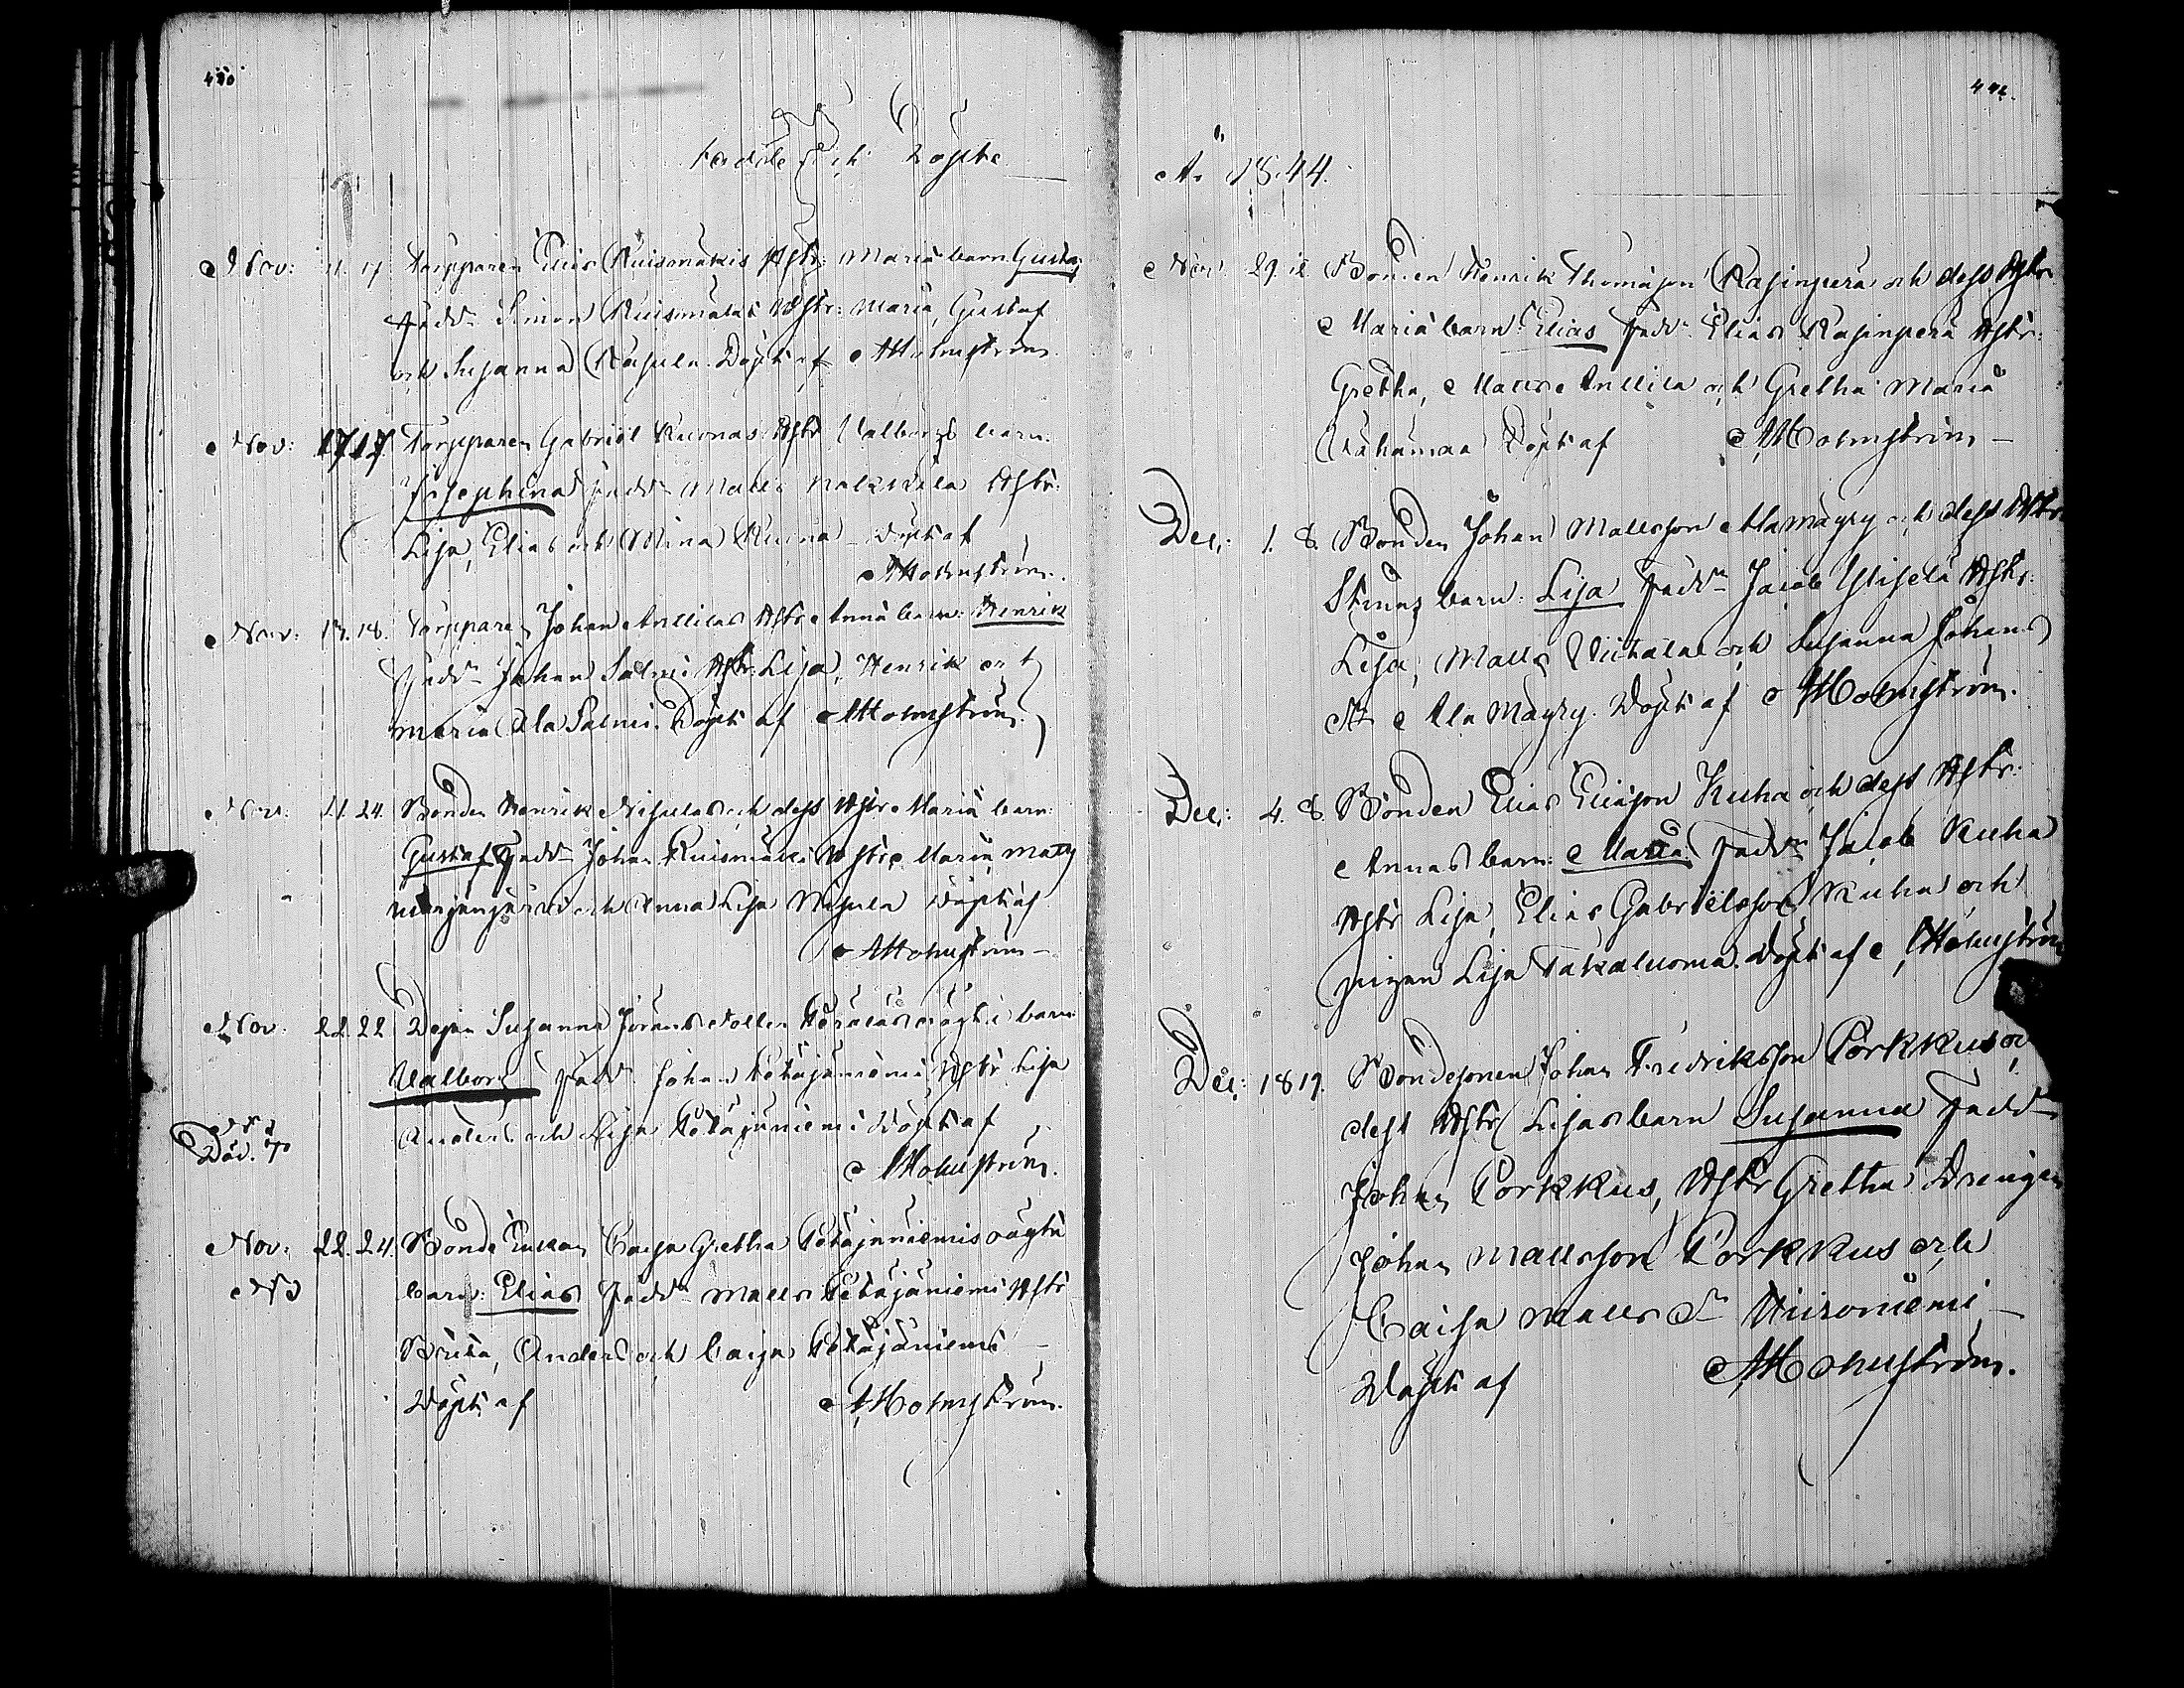 Födde och Döpte
Nov: 11. 17 Torpparen Elias Ruismäkis Hstr: Maria barn Gustaf
Fadd. Simon Ruismäkis Hstr: Maria, Gustaf
och Susanna Döpt af Holmström
Nov: 17 17 Torpparen Gabriel Ruonas Hstr Valborgs barn:
Josephina Fadd. Matts Hstr:
Lisa, Elias och Mina Ruona Döpt af
Holmström.
Nov: 18. Torpparen Johan Anttilas Hstr Anna barn: Henrik
Fadd. Johan Salmi Hstr: Lisa, Henrik och
Maria Ala Salmi. Döpt af Holmström.
Nov: 21. 24. Bonden Henrik Nisulas och dess Hstr Maria barn:
Gustaf Fadd. Johan Ruismäki Hstr Maria, Matts
och Anna Lisa Nisula Döpt af
Holmström
Nov: 22. 22 Susanna barn
Valborg Fadd. Johan Petäjäniemi Hstr Lisa
Anders och Lisa Petäjäniemi Döpt af
Död.
Holmström.
Nov: 22. 24. Bonde Enkan Caisa Gretha Petäjäniemis oägta
barn: Elias Fadd. Matts Petäjäniemi Hstr
Brita, Anders och Caisa Petäjäniemi
Döpt af Holmström.
Ao 1844.
Nov: 29. Bonden Henrik Thomasson Rasinperä och dess Hstr
Maria barn: Elias Fadd. Elias Rasinperä Hstr:
Gretha, Matts Anttila och Gretha Maria
Vähämaa Döpt af Holmström
Dec: 1. 8. Bonden Johan Mattsson Alamäyry och dess Hstr
Stinas barn: Lisa Fadd. Jacob Hstr:
Lisa, Matts och Susanna Johans
dr Ala Mäyry. Döpt af Holmström.
Dec: 4. 8. Bonden Elias Eliasson Kuha och dess Hstr:
Annas barn: Maria Fadd. Jacob Kuha
Hstr Lisa, Elias Gabrielsson Kuha och
pigan Lisa Takaluoma. Döpt af Holmström
Dec: 18 19. Bondesonen Johan Fredriksson Porkkus o
dess Hstr Lisas barn Susanna Fadd.
Johan Porkkus, Hstr Gretha Drengen
Johan Mattsson Porkkus och
Caisa Matts Dr Hiironiemi
Döpt af Holmström.